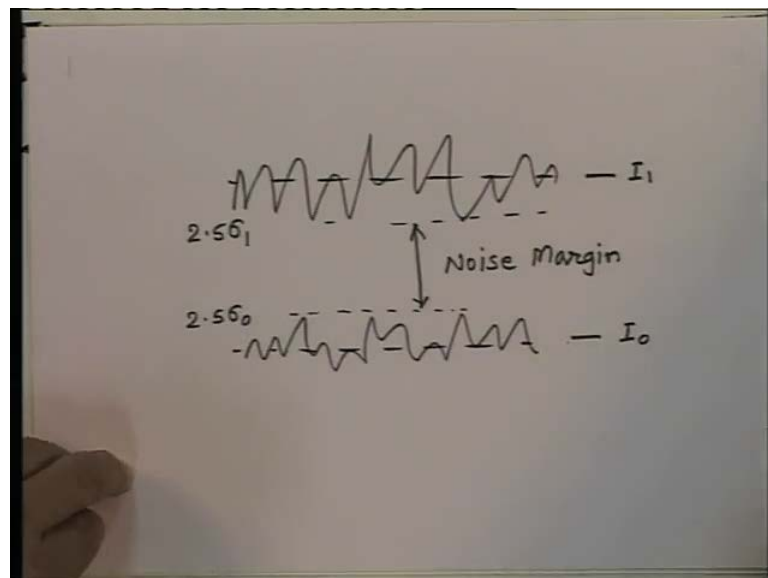 — I₁
2.5σ₁
Noise Margin
2.5σ₀
— I₀